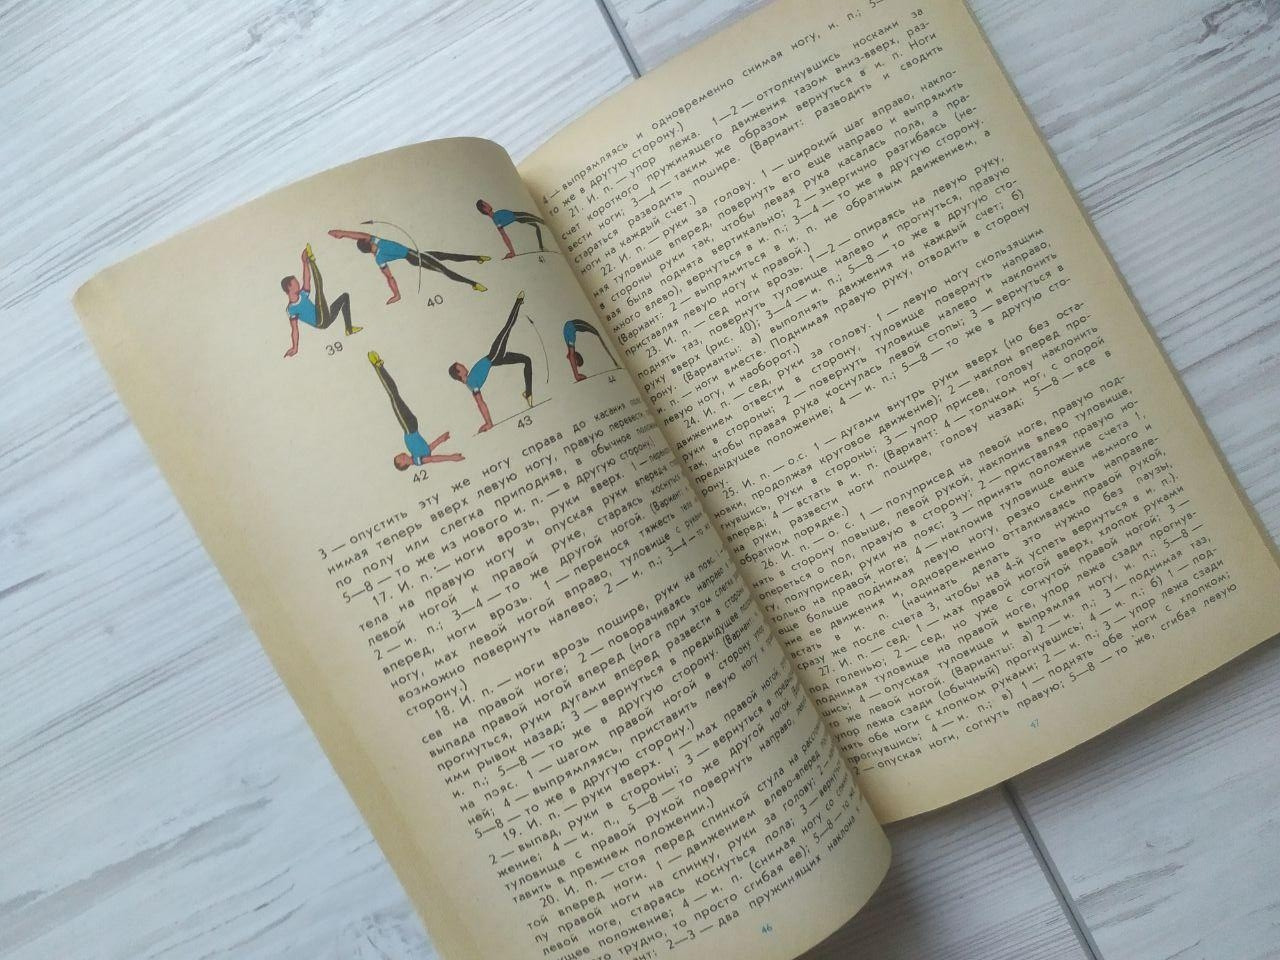 39
40
41
42
43
44
3 — опустить эту же ногу справа до касания
нимая теперь вверх левую ногу, правую перевести
по полу или слегка приподняв, в обычное
5—8 — то же из нового и. п. — в другую сторону.)
17. И. п. — ноги врозь, руки вверх. 1 —
тела на правую ногу и опуская руки вперед
левой ногой к правой руке, стараясь коснуться
2 — и. п.; 3—4 — то же другой ногой. (Вариант:
вперед, ноги врозь. 1 — перенося тяжесть тела
ногу, мах левой ногой вправо, туловище с
возможно повернуть налево; 2 — и. п.; 3—4 —
сторону.)
18. И. п. — ноги врозь пошире, руки на пояс.
сев на правой ноге; 2 — поворачиваясь
выпада правой ногой вперед (нога при этом
прогнуться, руки дугами вперед развести в стороны
ими рывок назад; 3 — вернуться в предыдущее
и. п.; 5—8 — то же в другую сторону. (Вариант:
на пояс. 1 — шагом правой ногой в сторону
4 — выпрямляясь, приставить левую ногу к
ней; 5—8 — то же в другую сторону.)
19. И. п. — руки вверх. 1 — мах правой ногой
2 — выпад, руки в стороны; 3 — вернуться в
жение; 4 — и. п.; 5—8 — то же другой ногой.
туловище с правой рукой повернуть направо,
тавить в прежнем положении.)
20. И. п. — стоя перед спинкой стула на
той вперед ноги. 1 — движением влево-вперед
лу правой ноги на спинку, руки за голову; 2 —
левой ноге, стараясь коснуться пола; 3 —
ущее положение; 4 — и. п. (снимая ногу со
это трудно, то просто сгибая ее); 5—8 — то же
2—3 — два пружинящих наклона
46
4 — выпрямляясь и одновременно снимая ногу, и. п.; 5—
то же в другую сторону.)
21. И. п. — упор лежа. 1—2 — оттолкнувшись носками за
счет короткого пружинящего движения тазом вниз-вверх, раз-
вести ноги; 3—4 — таким же образом вернуться в и. п. Ноги
стараться разводить пошире. (Вариант: разводить и сводить
ноги на каждый счет.)
22. И. п. — руки за голову. 1 — широкий шаг вправо, накло-
няя туловище вперед, повернуть его еще направо и выпрямить
в стороны руки так, чтобы левая рука касалась пола, а пра-
вая была поднята вертикально; 2 — энергично разгибаясь (не-
много влево), вернуться в и. п.; 3—4 — то же в другую сторону.
(Вариант: 2 — выпрямиться в и. п. не обратным движением, а
приставляя левую ногу к правой.)
23. И. п. — сед ноги врозь. 1—2 — опираясь на левую руку,
поднять таз, повернуть туловище налево и прогнуться, правую
руку вверх (рис. 40); 3—4 — и. п.; 5—8 — то же в другую сто-
рону. (Варианты: а) выполнять движения на каждый счет; б)
и. п. — ноги вместе. Поднимая правую руку, отводить в сторону
левую ногу, и наоборот.)
24. И. п. — сед, руки за голову. 1 — левую ногу скользящим
движением отвести в сторону, туловище повернуть направо,
руки в стороны; 2 — повернуть туловище налево и наклонить
так, чтобы правая рука коснулась левой стопы; 3 — вернуться в
предыдущее положение; 4 — и. п.; 5—8 — то же в другую сто-
рону.
25. И. п. — о.с. 1 — дугами внутрь руки вверх (но без оста-
новки, продолжая круговое движение); 2 — наклон вперед про-
гнувшись, руки в стороны; 3 — упор присев, голову наклонить
вперед; 4 — встать в и. п. (Вариант: 4 — толчком ног, с опорой
на руки, развести ноги пошире, голову назад; 5—8 — все в
обратном порядке.)
26. И. п. — о. с. 1 — полуприсед на левой ноге, правую под-
нять в сторону повыше, левой рукой, наклонив влево туловище,
опереться о пол, правую в сторону; 2 — приставляя правую но-
гу, полуприсед, руки на пояс; 3 — принять положение счета 1,
только на правой ноге; 4 — наклонив туловище еще немного и
еще больше поднимая левую ногу, резко сменить направле-
ние ее движения и, одновременно отталкиваясь правой рукой,
встать в и. п. (начинать делать это нужно без паузы,
сразу же после счета 3, чтобы на 4-й успеть вернуться в и. п.).
27. И. п. — сед. 1 — мах правой ногой вверх, хлопок руками
под голенью; 2 — сед, но уже с согнутой правой ногой; 3 —
поднимая туловище на правой ноге, упор лежа сзади прогнув-
шись; 4 — опуская туловище и выпрямляя ногу, и. п.; 5—8 —
то же левой ногой. (Варианты: а) 2 — и. п.; 3 — поднимая таз,
упор лежа сзади (обычный) прогнувшись; 4 — и. п.; б) 1 — под-
нять обе ноги с хлопком руками; 2 — и. п.; 3 — упор лежа сзади
прогнувшись; 4 — и. п.; в) 1 — поднять обе ноги с хлопком;
2 — опуская ноги, согнуть правую; 5—8 — то же, сгибая левую
47